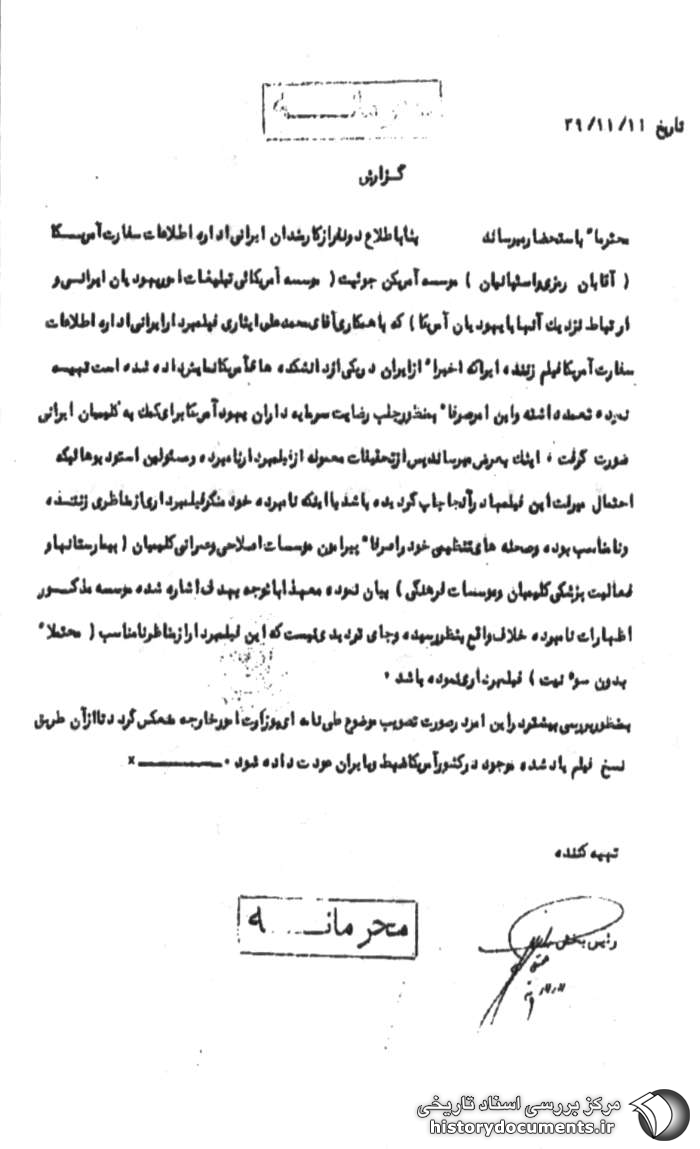 محرمانه
تاریخ ۳۹/۱۱/۱۱
گزارش
محترما" باستحضار میرساند بنا باطلاع دو نفر از کارمندان ایرانی اداره اطلاعات سفارت آمریکا
( آقایان رمزی و استپانیان ) موسسه آمریکن جوئیت ( موسسه آمریکائی تبلیغات امور یهودیان ایرانی و
ارتباط نزدیک آنها با یهودیان آمریکا ) که با همکاری آقای محمدعلی ایثاری فیلمبردار ایرانی اداره اطلاعات
سفارت آمریکا فیلم زننده ایراکه اخیرا" از ایران در یکی از دانشکده های آمریکا نمایش داده شده است تهیه
نموده تعمد داشته و این امر صرفا" بمنظور جلب رضایت سرمایه داران یهود آمریکا برای کمک به کلیمیان ایرانی
صورت گرفت ، اینک بعرض میرساند پس از تحقیقات معموله از فیلمبردار نامبرده و مسئولین استودیوهائیکه
احتمال میرفت این فیلمها در آنجا چاپ گردیده باشد با اینکه نامبرده خود منکر فیلمبرداری از مناظری زننده
و نامناسب بوده و صحنه های تنظیمی خود را صرفا" پیرامون موسسات اصلاحی و عمرانی کلیمیان ( بیمارستانها و
فعالیت پزشکی کلیمیان و موسسات فرهنگی ) بیان نموده معهذا با توجه بهدف اشاره شده موسسه مذکور
اظهارات نامبرده خلاف واقع بنظر رسیده و جای تردیدی نیست که این فیلمبردار از مناظر نامناسب ( محتملا"
بدون سوء نیت ) فیلمبرداری نموده باشد .
بمنظور بررسی بیشتر در این امر در صورت تصویب موضوع طی نامه ای بوزارت امور خارجه منعکس گردد تا از آن طریق
نسخ فیلم یاد شده موجود در کشور آمریکا ضبط و بایران عودت داده شود . ـــــــ x
تهیه کننده
رئیس بخش
محرمانه
مرکز بررسی اسناد تاریخی
historydocuments.ir